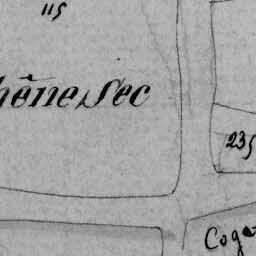 115
hêne Sec
235
Coga